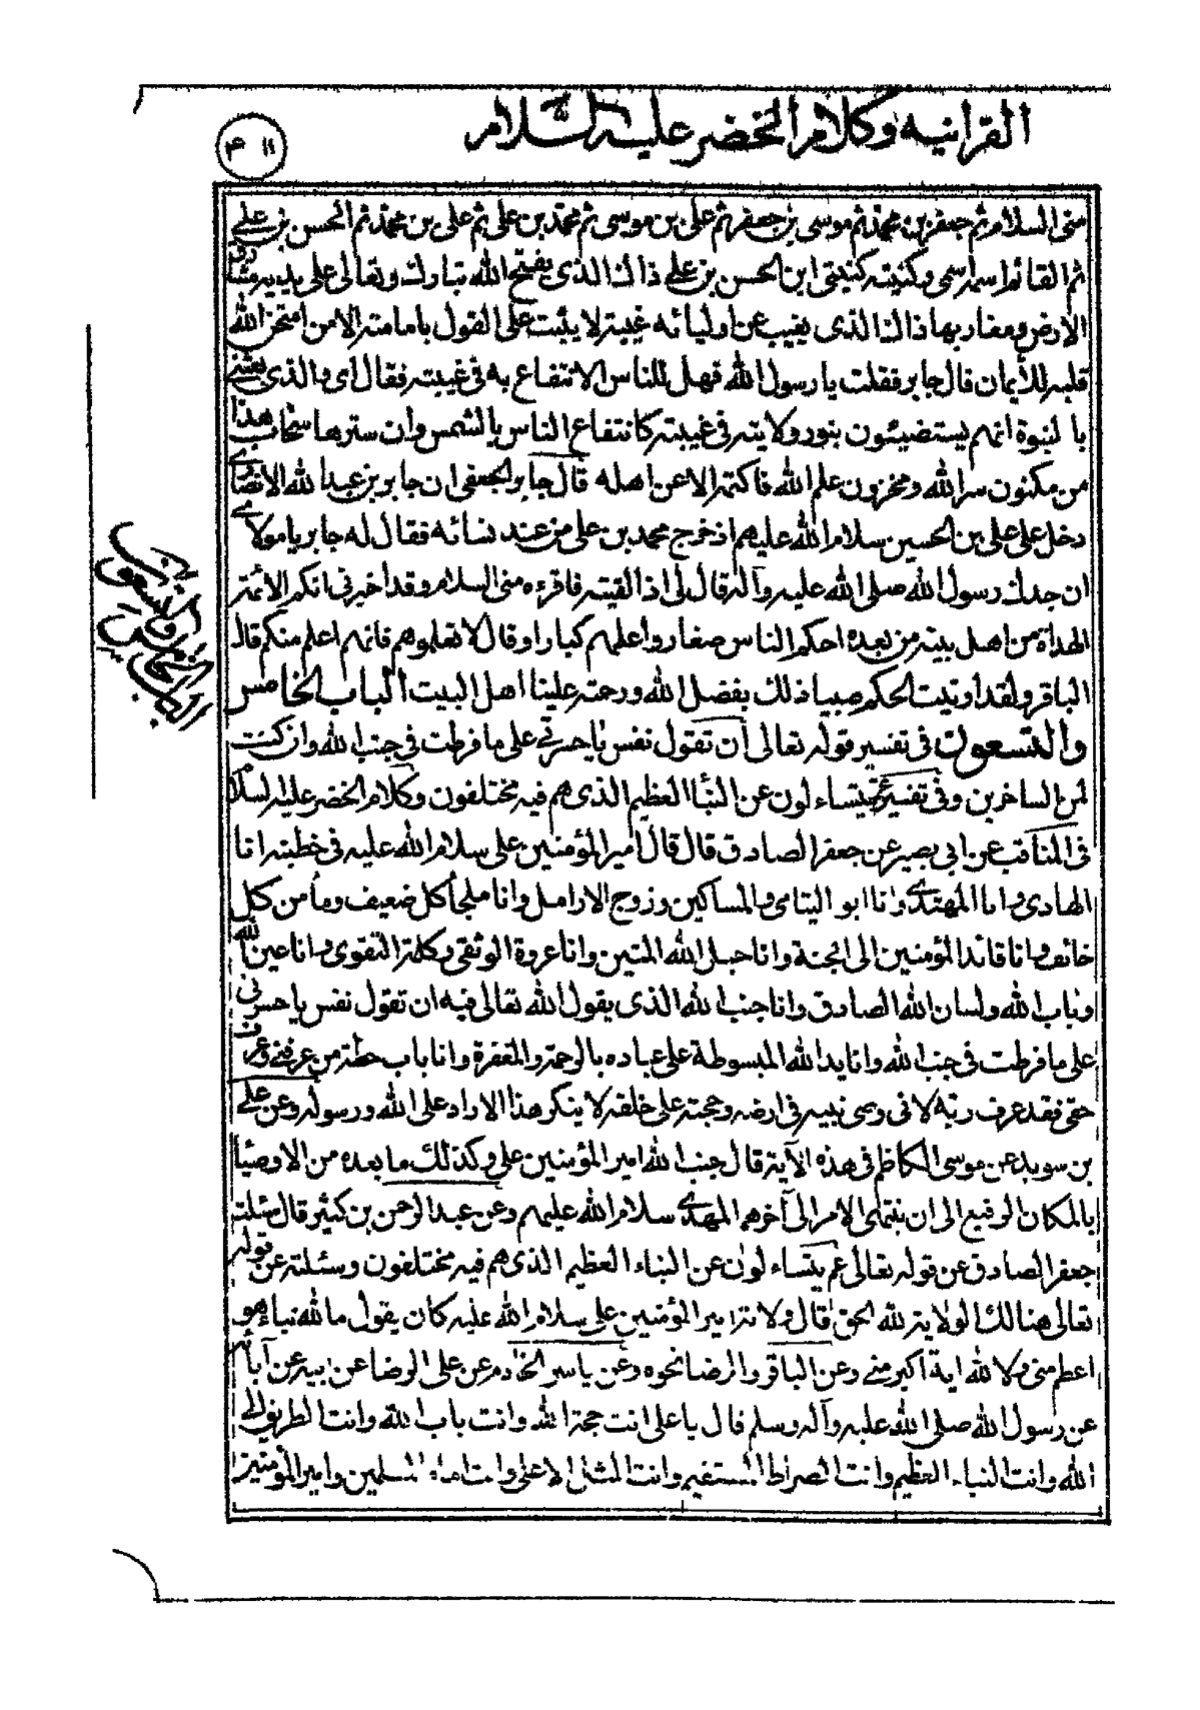 القرانیه وکلام الخضر علیه السلام
۴۱۱
منی السلام ثم جعفر بن محمد ثم موسی بن جعفر ثم علی بن موسی ثم محمد بن علی ثم علی بن محمد ثم الحسن بن علی
ثم القائم اسمه اسمی وکنیته کنیتی ابن الحسن بن علی ذاك الذی یفتح الله تبارك وتعالی علی یدیه مشارق
الارض ومغاربها ذاك الذی یغیب عن اولیائه غیبة لا یثبت علی القول بامامته الا من امتحن الله
قلبه للأیمان قال جابر فقلت یا رسول الله فهل للناس الانتفاع به فی غیبته فقال ای والذی بعثنی
بالنبوة انهم یستضیئون بنور ولایته فی غیبته کانتفاع الناس بالشمس وان سترها سحاب هذا
من مکنون سر الله ومخزون علم الله فاکتمه الا عن اهله قال جابر الجعفی ان جابر بن عبد الله الانصاری
دخل علی علی بن الحسین سلام الله علیهم اذ خرج محمد بن علی من عند نسائه فقال له جابر یا مولای
ان جدك رسول الله صلی الله علیه وآله قال لی اذا لقیته فاقرءه منی السلام وقد اخبرنی انکم الائمة
الهداة من اهل بیته من بعده احکم الناس صغارا واعلمهم کبارا وقال لا تعلموهم فانهم اعلم منکم قال
الباقر ولقد اوتیت الحکم صبیا ذلك بفضل الله ورحمته علینا اهل البیت الباب الخامس
والتسعون فی تفسیر قوله تعالی أن تقول نفس یا حسرتی علی ما فرطت فی جنب الله وان کنت
لمن الساخرین وفی تفسیر عم یتساءلون عن النبأ العظیم الذی هم فیه مختلفون وکلام الخضر علیه السلام
فی المناقب عن ابی بصیر عن جعفر الصادق قال قال امیر المؤمنین علی سلام الله علیه فی خطبته انا
الهادی وانا المهتدی وانا ابو الیتامی والمساکین وزوج الارامل وانا ملجأ کل ضعیف ومأمن کل
خائف وانا قائد المؤمنین الی الجنة وانا حبل الله المتین وانا عروة الوثقی وکلمة التقوی وانا عین الله
وباب الله ولسان الله الصادق وانا جنب الله الذی یقول الله تعالی فیه ان تقول نفس یا حسرتی
علی ما فرطت فی جنب الله وانا ید الله المبسوطة علی عباده بالرحمة والمغفرة وانا باب حطة من عرفنی وعرف
حقی فقد عرف ربه لانی وصی نبیه فی ارضه وحجته علی خلقه لا ینکر هذا الا راد علی الله ورسوله وعن علی
بن سوید عن موسی الکاظم فی هذه الآیة قال جنب الله امیر المؤمنین علی وکذلك ما بعده من الاوصیا
بالمکان الرفیع الی ان ینتهی الامر الی آخرهم المهدی سلام الله علیهم وعن عبد الرحمن بن کثیر قال سئلت
جعفر الصادق عن قوله تعالی عم یتساءلون عن النباء العظیم الذی هم فیه مختلفون وسئلته عن قوله
تعالی هنالك الولایة لله الحق قال ولایة امیر المؤمنین علی سلام الله علیه کان یقول ما لله نباء هو
اعظم منی ولا لله ایة اکبر منی وعن الباقر والرضا نحوه وعن یاسر الخادم عن علی الرضا عن ابیه عن آبائه
عن رسول الله صلی الله علیه وآله وسلم قال یا علی انت حجة الله وانت باب الله وانت الطریق الی
الله وانت النباء العظیم وانت الصراط المستقیم وانت المثل الاعلی وانت امام المسلمین وامیر المؤمنین
الباب الخامس والتسعون